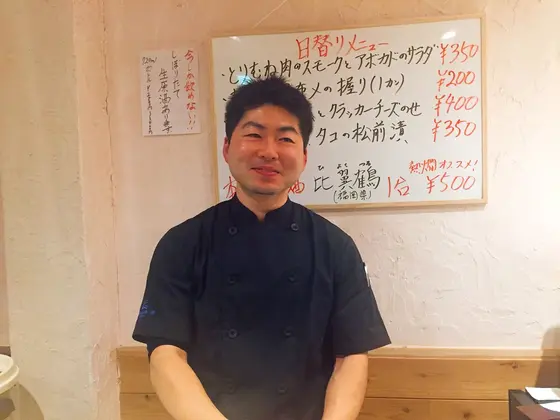 今しか飲めない!!
しぼりたて
生原酒あります
日替りメニュー
・とりむね肉のスモークとアボカドのサラダ ¥350
メの握り(1カン) ¥200
とクラッカーチーズのせ ¥400
タコの松前漬 ¥350
酒 比翼鶴 1合 ¥500
ひ よく つる
(福岡県)
熱燗オススメ!